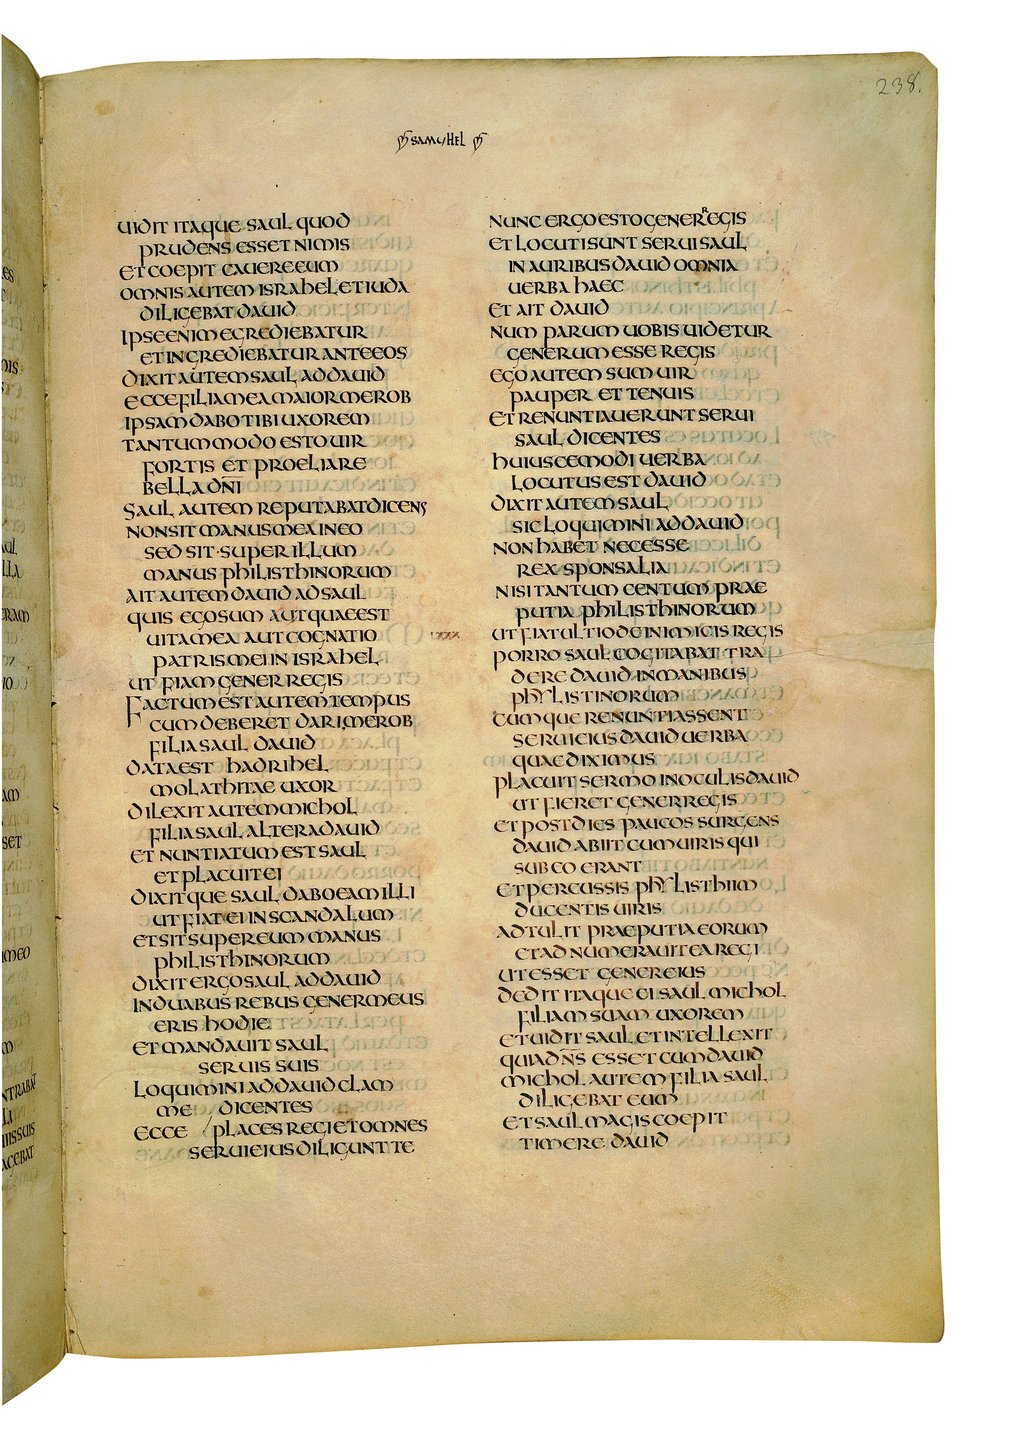 238.
SAMUHEL
UIDIT ITAQUE SAUL QUOD
PRUDENS ESSET NIMIS
ET COEPIT CAUERE EUM
OMNIS AUTEM ISRAHEL ET IUDA
DILIGEBAT DAUID
IPSE ENIM EGREDIEBATUR
ET INGREDIEBATUR ANTE EOS
DIXIT AUTEM SAUL AD DAUID
ECCE FILIA MEA MAIOR MEROB
IPSAM DABO TIBI UXOREM
TANTUM MODO ESTO UIR
FORTIS ET PROELIARE
BELLA DN̄I
SAUL AUTEM REPUTABAT DICENS
NON SIT MANUS MEA IN EO
SED SIT SUPER ILLUM
MANUS PHILISTHINORUM
AIT AUTEM DAUID AD SAUL
QUIS EGO SUM AUT QUAE EST
UITA MEA AUT COGNATIO
PATRIS MEI IN ISRAHEL
UT FIAM GENER REGIS
FACTUM EST AUTEM TEMPUS
CUM DEBERET DARI MEROB
FILIA SAUL DAUID
DATA EST HADRIHEL
MOLATHITAE UXOR
DILEXIT AUTEM MICHOL
FILIA SAUL ALTERA DAUID
ET NUNTIATUM EST SAUL
ET PLACUIT EI
DIXITQUE SAUL DABO EAM ILLI
UT FIAT EI IN SCANDALUM
ET SIT SUPER EUM MANUS
PHILISTHINORUM
DIXIT ERGO SAUL AD DAUID
IN DUABUS REBUS GENER MEUS
ERIS HODIE
ET MANDAUIT SAUL
SERUIS SUIS
LOQUIMINI AD DAUID CLAM
ME DICENTES
ECCE PLACES REGI ET OMNES
SERUI EIUS DILIGUNT TE
NUNC ERGO ESTO GENER REGIS
ET LOCUTI SUNT SERUI SAUL
IN AURIBUS DAUID OMNIA
UERBA HAEC
ET AIT DAUID
NUM PARUM UOBIS UIDETUR
GENERUM ESSE REGIS
EGO AUTEM SUM UIR
PAUPER ET TENUIS
ET RENUNTIAUERUNT SERUI
SAUL DICENTES
HUIUSCEMODI UERBA
LOCUTUS EST DAUID
DIXIT AUTEM SAUL
SIC LOQUIMINI AD DAUID
NON HABET NECESSE
REX SPONSALIA
NISI TANTUM CENTUM PRAE
PUTIA PHILISTHINORUM
UT FIAT ULTIO DE INIMICIS REGIS
PORRO SAUL COGITABAT TRA
DERE DAUID IN MANIBUS
PHYLISTINORUM
CUMQUE RENUNTIASSENT
SERUI EIUS DAUID UERBA
QUAE DIXIMUS
PLACUIT SERMO IN OCULIS DAUID
UT FIERET GENER REGIS
ET POST DIES PAUCOS SURGENS
DAUID ABIIT CUM UIRIS QUI
SUB EO ERANT
ET PERCUSSIS PHYLISTHIIM
DUCENTIS UIRIS
ADTULIT PRAEPUTIA EORUM
ET ADNUMERAUIT EA REGI
UT ESSET GENER EIUS
DEDIT ITAQUE EI SAUL MICHOL
FILIAM SUAM UXOREM
ET UIDIT SAUL ET INTELLEXIT
QUIA DN̄S ESSET CUM DAUID
MICHOL AUTEM FILIA SAUL
DILIGEBAT EUM
ET SAUL MAGIS COEPIT
TIMERE DAUID